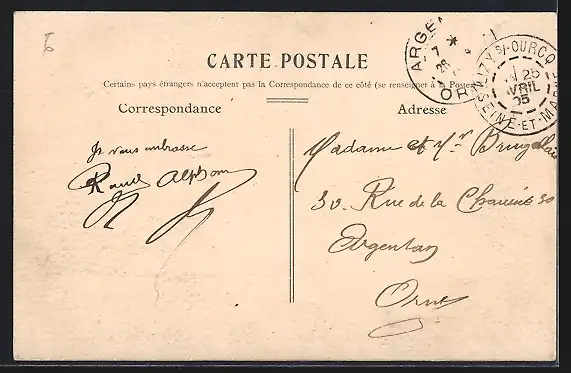 6
CARTE POSTALE
Certains pays étrangers n'acceptent pas la Correspondance de ce côté (se renseigner à la Poste)
Correspondance
Adresse
ARGEN
7
28
OR
LIZY S/-OURCQ
25
AVRIL
05
SEINE-ET-MA
Je vous embrasse
Raoul Alphons
Madame et Mr
30. Rue de la Chaussée 30
Argentan
Orne